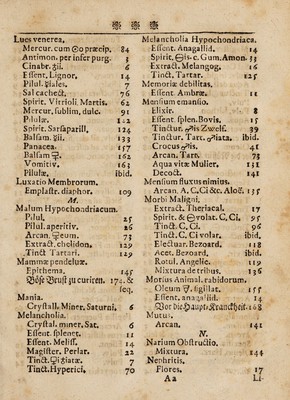 Lues venerea,
Mercur. cum ☉o præcip. 84
Antimon. per infer purg. 1
Cinabr. ʒii. 6
Essent, Lignor. 14
Pilul. ʒiales. 7
Sal cachect. 76
Spirit. Vitrioli Martis. 62
Mercur. sublim. dulc. 91
Pilulæ, 112
Spirit, Sarsaparill, 124
Balsam. ʒii. 133
Panacea. 157
Balsam ☿. 162
Vomitiv. 163
Pilulæ ibid.
Luxatio Membrorum.
Emplastr. diaphor. 109
M.
Malum Hypochondriacum.
Pilul, 25
Pilul. aperitiv. 26
Arcan. ♕eum. 73
Extract. chelidon. 129
Tinct Tartari. 129
Mammæ pendelux.
Epithema. 145
Böse Brust zu curiren. 174. &
seq.
Mania.
Crystall. Miner, Saturni. 6
Melancholia.
Crystal. miner. Sat. 6
Essent. splenet. 11
Essent. Meliss. 14
Magister. Perlar. 22
Tinct. ☿i ʒiatæ. 7
Tinct. Hyperici, 70
Melancholia Hypochondriaca.
Essent. Anagallid. 14
Spirit. ⊖is c. Gum. Amon. 35
Extract. Melangog. 16
Tinct, Tartar. 125
Memoriæ debilitas.
Essent. Ambræ. 11
Mensium emansio.
Elixir. 8
Essent. splen. Bovis. 15
Tinctur. ♂is Zwelf. 39
Tinctur. Tart. ♂iata. ibid.
Crocus ♂is. 41
Arcan. Tart. 73
Aqua vitæ Mulier. 131
Decoct. 141
Mensium fluxus nimius.
Arcan. A. C, Ci &c. Aloë. 135
Morbi Maligni.
Extract. Theriacal. 17
Spirit. & ⊖volat. C, Ci. 95
Tinct. C, Ci. 96
Tinct. C. Ci volat. ibid.
Electuar. Bezoard. 118
Acet. Bezoard. ibid.
Rotul. Angelic. 119
Mixtura de tribus. 136
Morsus Animal. rabidorum.
Oleum ☿. ʒigillat. 155
Essent. anagallid. 14
Vor die Haupt-Kranckheit 168
Mutus.
Arcan. 141
N.
Narium Obstructio.
Mixtura, 144
Nephritis.
Flores. 17
Aa Li-